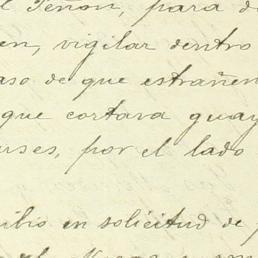 l Peñon, para d
en, vigilar dentro
aso de que estrañen
que cortava guay
uses, por el lado
ilio en solicitud de